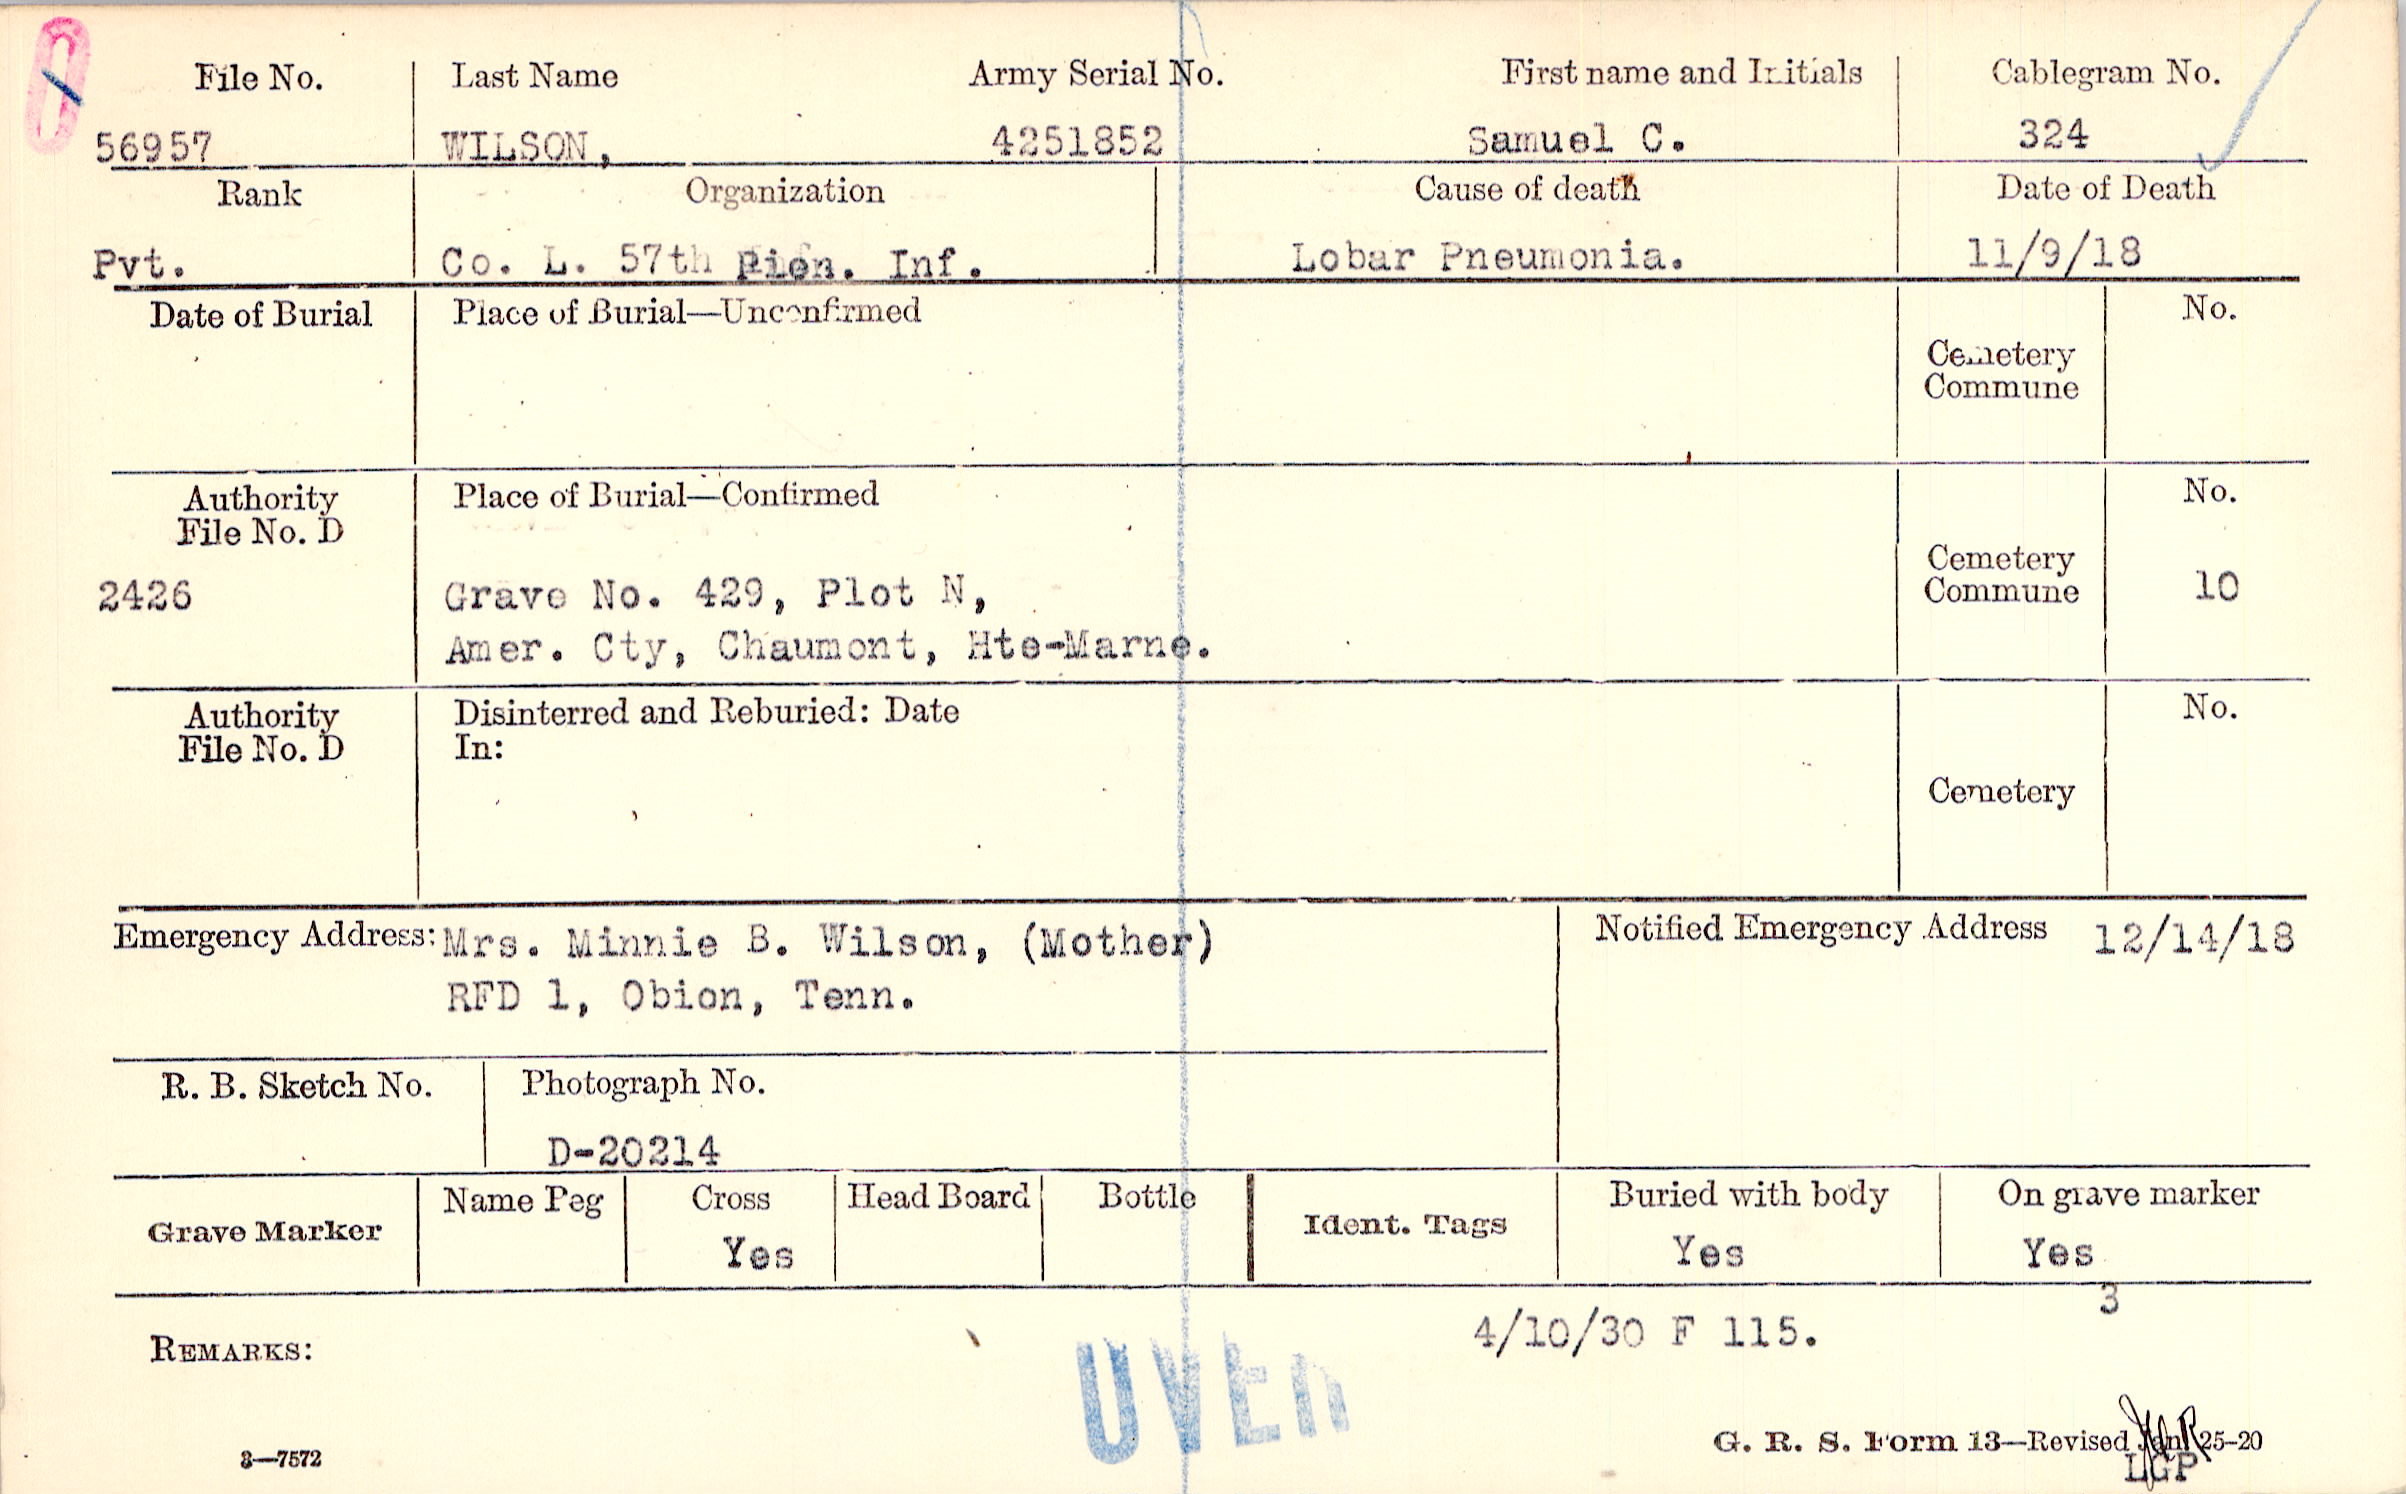 File No. Last Name Army Serial No. First name and Initials Cablegram No.
56957 WILSON, 4251852 Samuel C. 324
Rank Organization Cause of death Date of Death
Pvt. Co. L. 57th Pion. Inf. Lobar Pneumonia. 11/9/18
Date of Burial Place of Burial—Unconfirmed No.
Cemetery
Commune
Authority Place of Burial—Confirmed No.
File No. D
Cemetery
Commune
2426 Grave No. 429, Plot N, 10
Amer. Cty, Chaumont, Hte-Marne.
Authority Disinterred and Reburied: Date No.
File No. D In:
Cemetery
Emergency Address: Mrs. Minnie B. Wilson, (Mother) Notified Emergency Address 12/14/18
RFD 1, Obion, Tenn.
R. B. Sketch No. Photograph No.
D-20214
Grave Marker Name Peg Cross Head Board Bottle Ident. Tags Buried with body On grave marker
Yes Yes Yes
3
4/10/30 F 115.
REMARKS:
OVER
3—7572 G. R. S. Form 13—Revised Jan 25-20
LGP